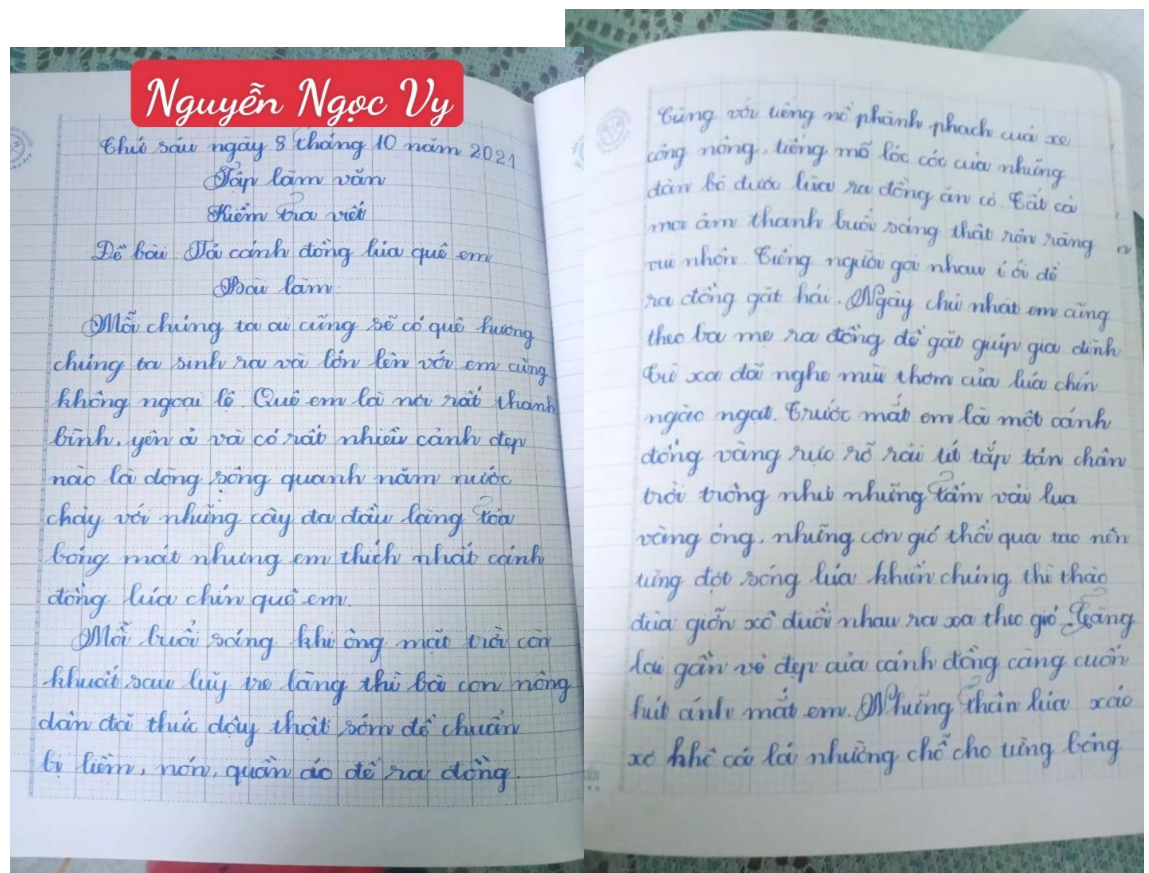 Nguyễn Ngọc Vy
Thứ sáu ngày 8 tháng 10 năm 2021
Tập làm văn
Kiểm tra viết
Đề bài: Tả cánh đồng lúa quê em
Bài làm
Mỗi chúng ta ai cũng sẽ có quê hương
chúng ta sinh ra và lớn lên với em cũng
không ngoại lệ. Quê em là nơi rất thanh
bình, yên ả và có rất nhiều cảnh đẹp
nào là dòng sông quanh năm nước
chảy với những cây đa đầu làng tỏa
bóng mát nhưng em thích nhất cánh
đồng lúa chín quê em.
Mỗi buổi sáng khi ông mặt trời còn
khuất sau luỹ tre làng thì bà con nông
dân đã thức dậy thật sớm để chuẩn
bị liềm, nón, quần áo để ra đồng.
Cùng với tiếng nổ phành phạch của xe
công nông, tiếng mõ lóc cóc của những
đàn bò dưới lúa ra đồng ăn cỏ. Tất cả
mọi âm thanh buổi sáng thật rộn ràng
vui nhộn. Tiếng người gọi nhau í ới để
ra đồng gặt hái. Ngày chủ nhật em cũng
theo ba mẹ ra đồng để gặt giúp gia đình
Từ xa đã nghe mùi thơm của lúa chín
ngào ngạt. Trước mắt em là một cánh
đồng vàng rực rỡ rải tít tắp tận chân
trời trông như những tấm vải lụa
vàng óng, những cơn gió thổi qua tạo nên
từng đợt sóng lúa khiến chúng thì thào
đùa giỡn xô đuổi nhau ra xa theo gió. Càng
lại gần vẻ đẹp của cánh đồng càng cuốn
hút ánh mắt em. Những thân lúa xác
xơ khô cả lá nhường chỗ cho từng bông